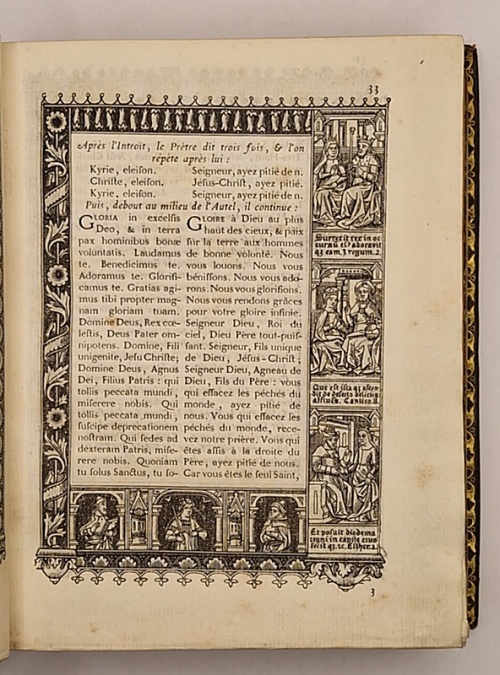 33
Après l'Introït, le Prêtre dit trois fois, & l'on
répète après lui :
Kyrie, eleison.
Christe, eleison.
Kyrie, eleison.
Seigneur, ayez pitié de n.
Jésus-Christ, ayez pitié.
Seigneur, ayez pitié de n.
Puis, debout au milieu de l'Autel, il continue :
GLORIA in excelsis
Deo, & in terra
pax hominibus bonæ
voluntatis. Laudamus
te. Benedicimus te.
Adoramus te. Glorifi-
camus te. Gratias agi-
mus tibi propter mag-
nam gloriam tuam.
Domine Deus, Rex cœ-
lestis, Deus Pater om-
nipotens. Domine, Fili
unigenite, Jesu Christe;
Domine Deus, Agnus
Dei, Filius Patris : qui
tollis peccata mundi,
miserere nobis. Qui
tollis peccata mundi,
suscipe deprecationem
nostram. Qui sedes ad
dexteram Patris, mise-
rere nobis. Quoniam
tu solus Sanctus, tu so-
GLOIRE à Dieu au plus
haut des cieux, & paix
sur la terre aux hommes
de bonne volonté. Nous
vous louons. Nous vous
bénissons. Nous vous ado-
rons. Nous vous glorifions.
Nous vous rendons grâces
pour votre gloire infinie.
Seigneur Dieu, Roi du
ciel, Dieu Père tout-puis-
sant. Seigneur, Fils unique
de Dieu, Jésus-Christ;
Seigneur Dieu, Agneau de
Dieu, Fils du Père : vous
qui effacez les péchés du
monde, ayez pitié de
nous. Vous qui effacez les
péchés du monde, rece-
vez notre prière. Vous qui
êtes assis à la droite du
Père, ayez pitié de nous.
Car vous êtes le seul Saint,
Surrexit rex in oc
cursū ei⁹ adoravit
qz eam. 3. regum. 2
Que est ista qz ascen
dit de deserto
Cantico. 8.
Et posuit diadema
regni in capite eius
Esther. 2
3